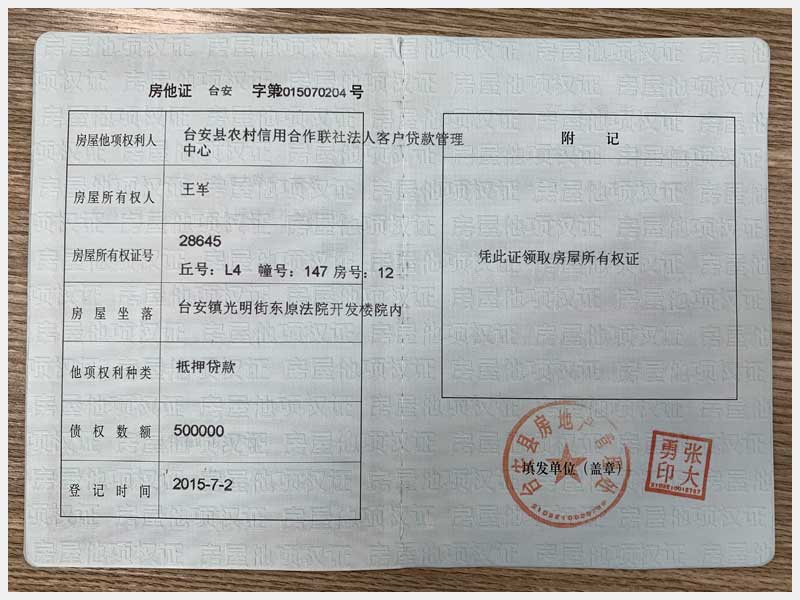 房他证 台安 字第2015070204 号
房屋他项权利人 台安县农村信用合作联社法人客户贷款管理
中心
房屋所有权人 王军
房屋所有权证号 28645
丘号：L4 幢号：147 房号：12
房屋坐落 台安镇光明街东原法院开发楼院内
他项权利种类 抵押贷款
债权数额 500000
登记时间 2015-7-2
附 记
凭此证领取房屋所有权证
台安县房地产管理处
填发单位（盖章）
张大
勇印